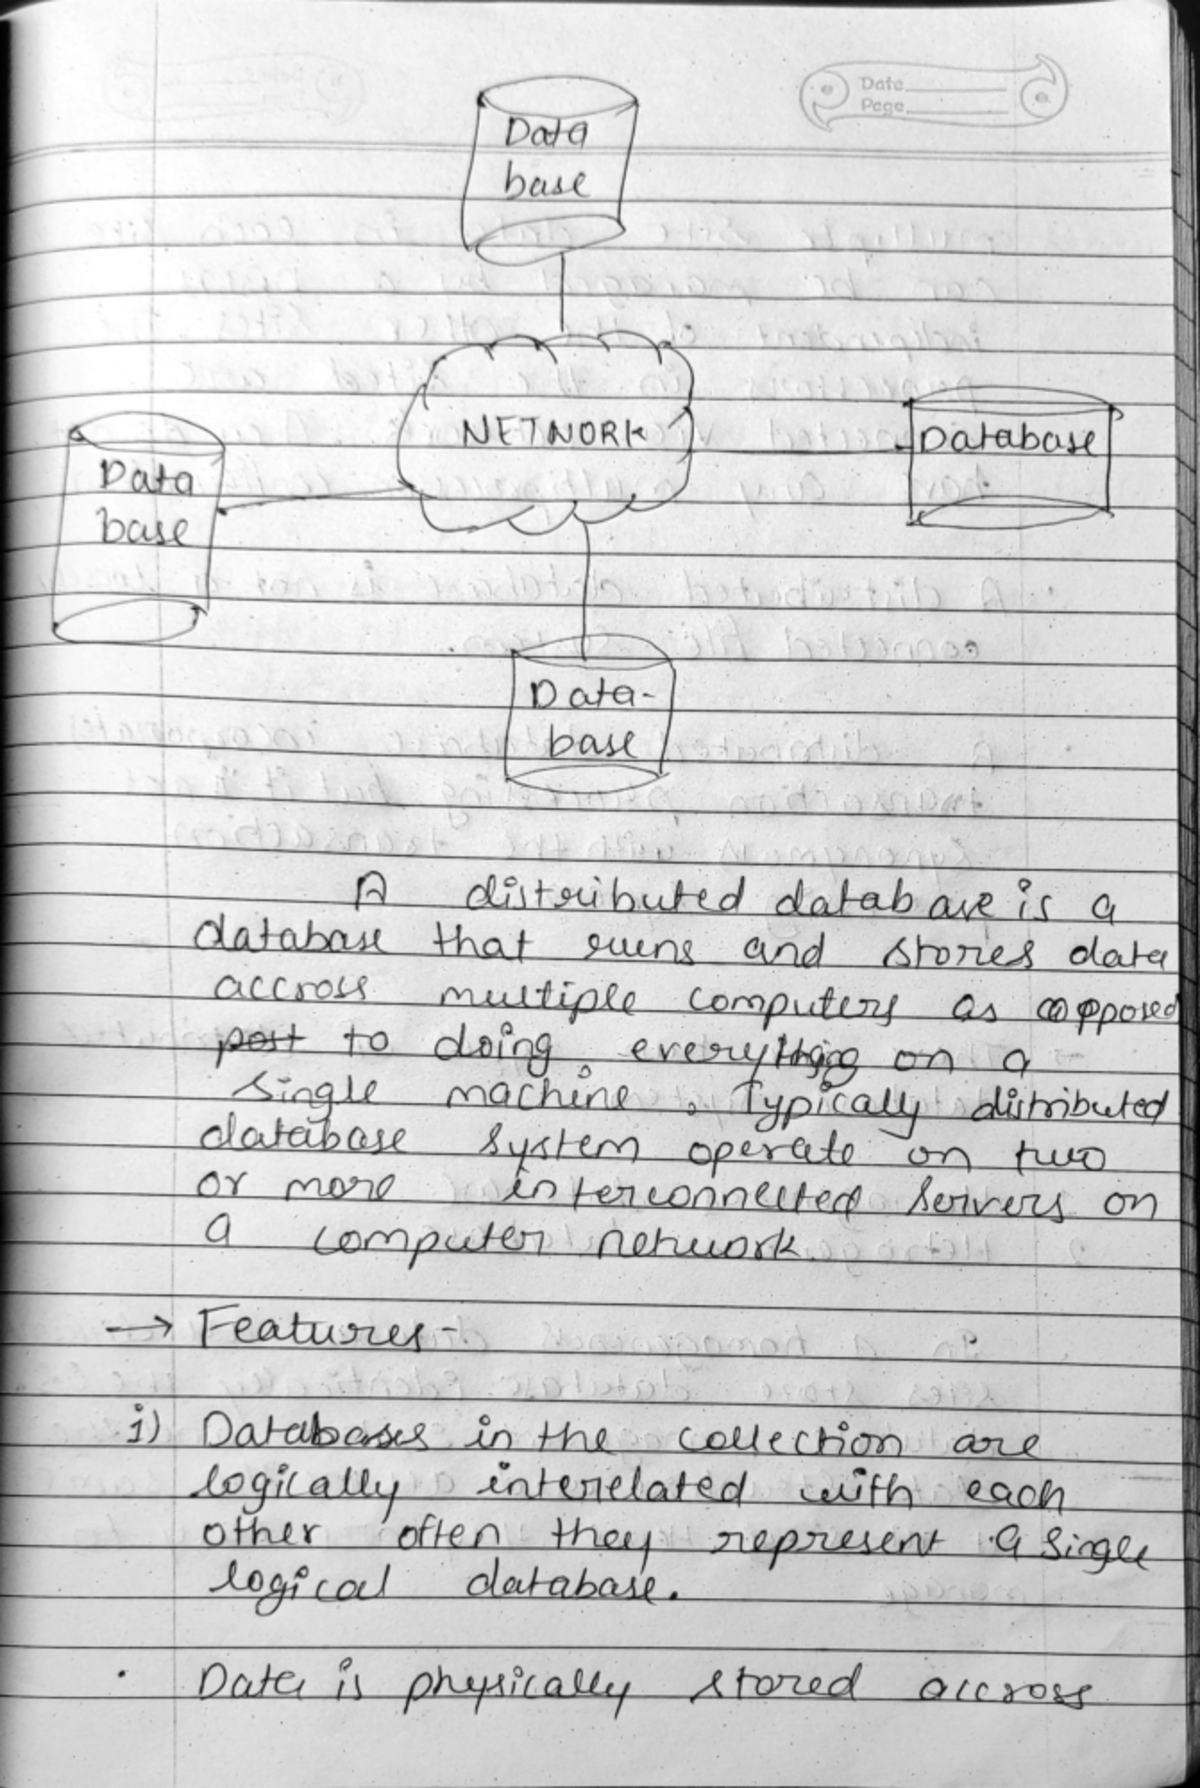 Date
Page
Data
base
NETWORK
Database
Data
base
Data-
base
A distributed database is a
database that runs and stores data
accross multiple computers as opposed
to doing everything on a
single machine. Typically distributed
database system operate on two
or more interconnected servers on
a computer network.
→ Features-
i) Databases in the collection are
logically interelated with each
other often they represent a single
logical database.
· Data is physically stored accross